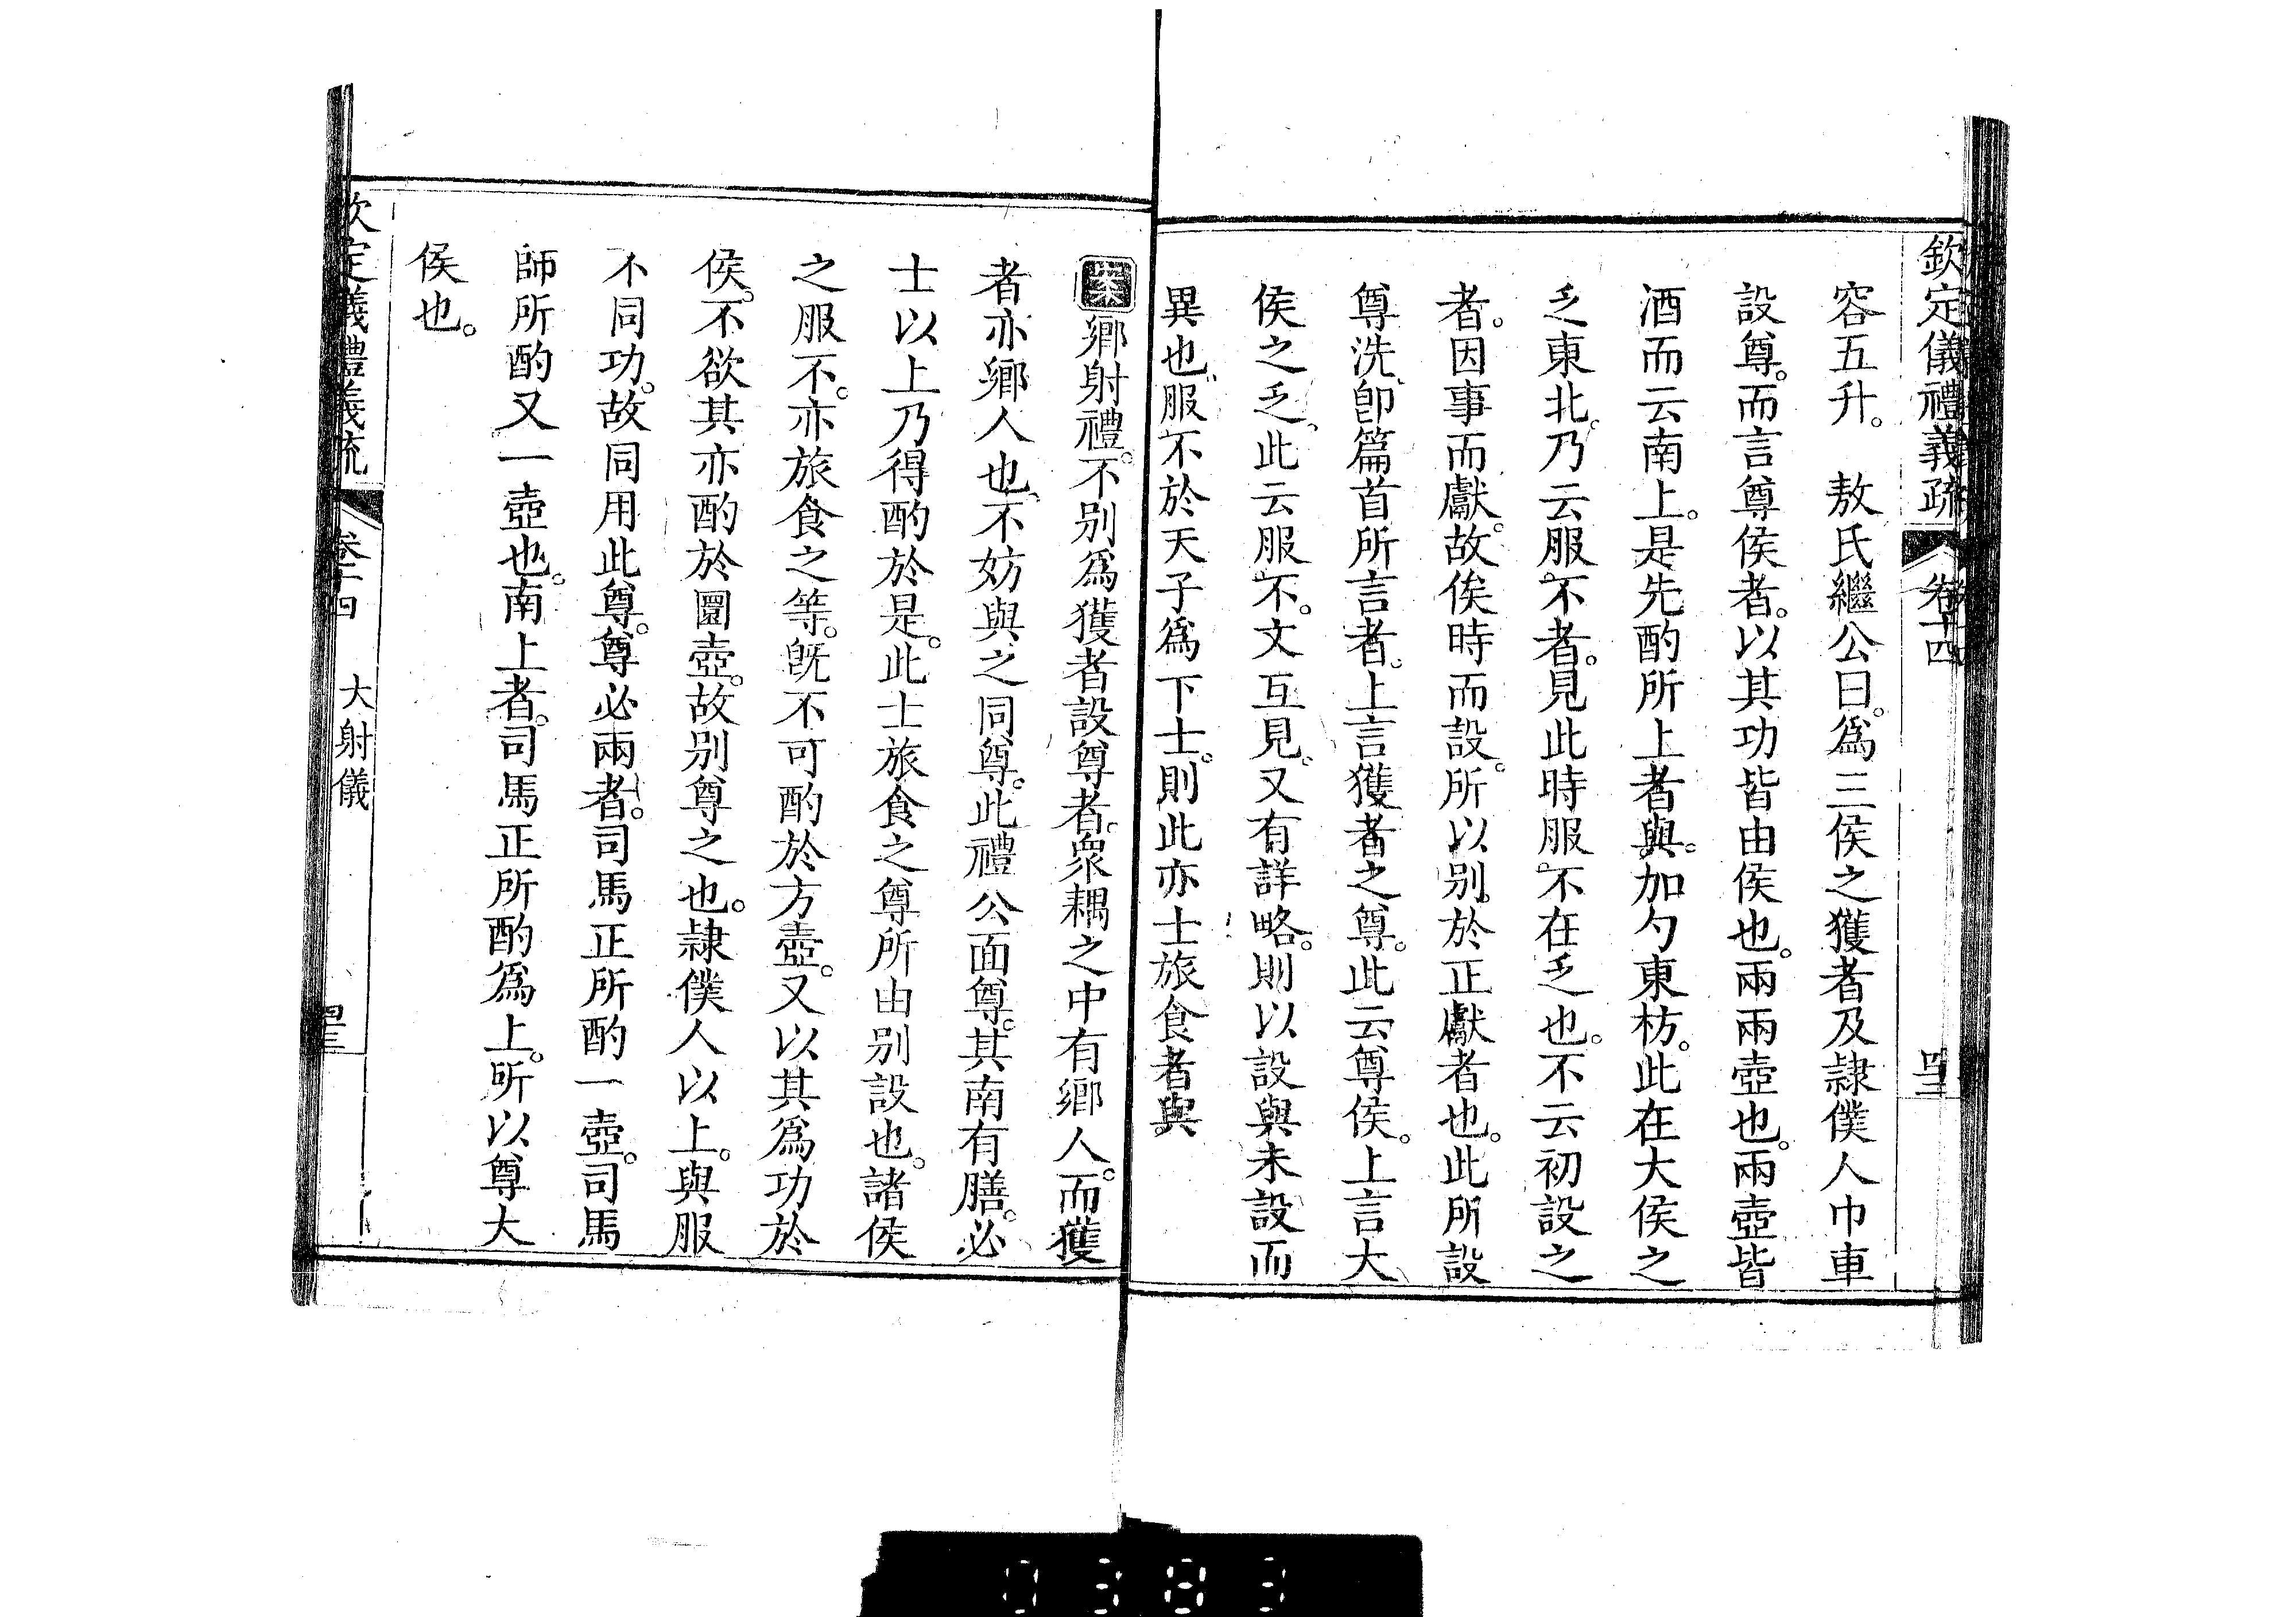 欽定儀禮義疏 卷十四
容五升。 敖氏繼公曰。爲三侯之獲者及隷僕人巾車
設尊。而言尊侯者。以其功皆由侯也。兩兩壺也。兩壺皆
酒而云南上。是先酌所上者與。加勺東枋。此在大侯之
乏東北。乃云服不者。見此時服不在乏也。不云初設之
者。因事而獻。故俟時而設。所以別於正獻者也。此所設
尊洗、卽篇首所言者。上言獲者之尊。此云尊侯。上言大
侯之乏、此云服不。文互見。又有詳略。則以設與未設而
異也。服不於天子爲下士。則此亦士旅食者與。
案鄉射禮。不別爲獲者設尊者。衆耦之中有鄉人。而獲
者亦鄉人也、不妨與之同尊。此禮公面尊。其南有膳。必
士以上乃得酌於是。此士旅食之尊所由別設也。諸侯
之服不。亦旅食之等。旣不可酌於方壺。又以其爲功於
侯。不欲其亦酌於圜壺。故別尊之也。隷僕人以上。與服
不同功。故同用此尊。尊必兩者。司馬正所酌一壺。司馬
師所酌又一壺也。南上者。司馬正所酌爲上。所以尊大
侯也。
欽定儀禮義疏 卷十四 大射儀
0383